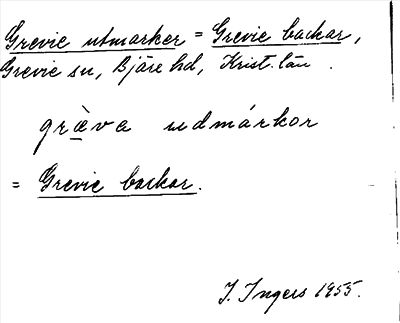 Grevie utmarker = Grevie backar,
Grevie sn, Bjäre hd, Krist. län.
græ̀va udmárkor
= Grevie backar.
I. Ingers 1955.